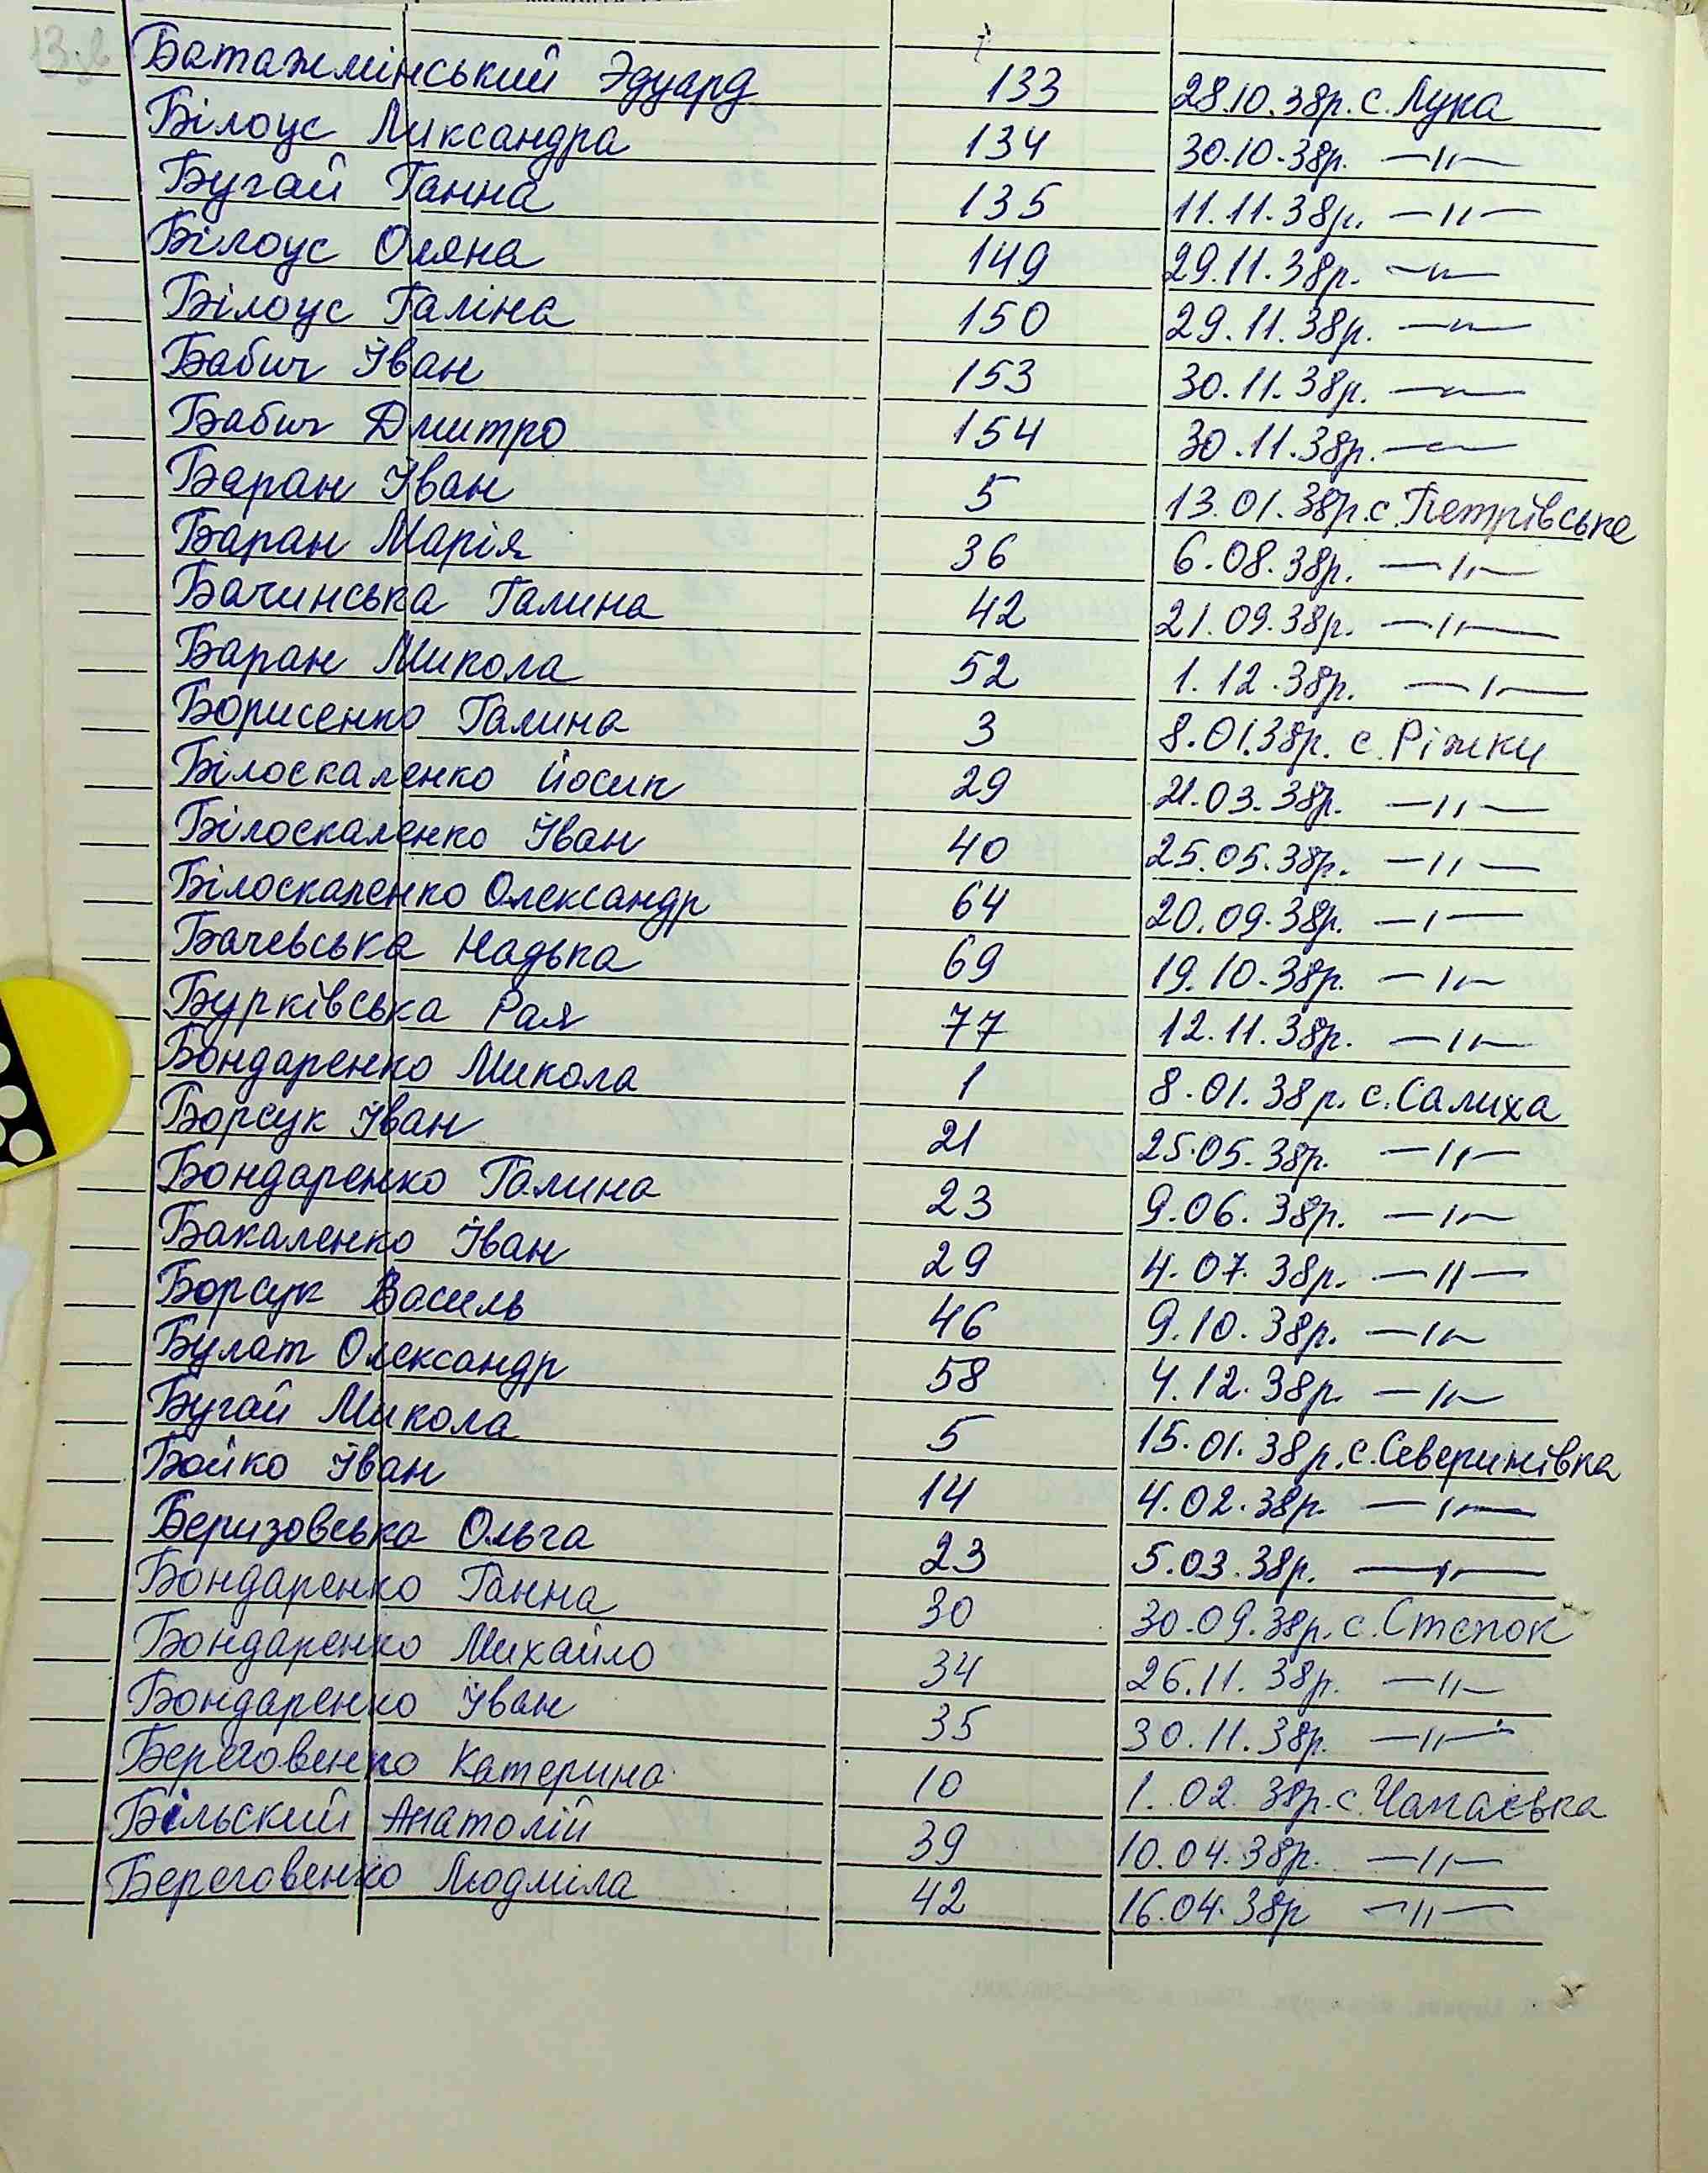 Батажмінський Эдуард 133 28.10.38р. с. Лука
Білоус Ликсандра 134 30.10.38р. —"—
Бугай Ганна 135 11.11.38р. —"—
Білоус Оляна 149 29.11.38р. —"—
Білоус Галіна 150 29.11.38р. —"—
Бабич Іван 153 30.11.38р. —"—
Бабич Дмитро 154 30.11.38р. —"—
Баран Іван 5 13.01.38р. с. Петрівське
Баран Марія 36 6.08.38р. —"—
Бачинська Галина 42 21.09.38р. —"—
Баран Микола 52 1.12.38р. —"—
Борисенко Галина 3 8.01.38р. с. Ріжки
Білоскаленко Йосип 29 21.03.38р. —"—
Білоскаленко Іван 40 25.05.38р. —"—
Білоскаленко Олександр 64 20.09.38р. —"—
Бачевська Надька 69 19.10.38р. —"—
Бурківська Рая 77 12.11.38р. —"—
Бондаренко Микола 1 8.01.38р. с. Салиха
Борсук Іван 21 25.05.38р. —"—
Бондаренко Галина 23 9.06.38р. —"—
Бакаленко Іван 29 4.07.38р. —"—
Борсук Василь 46 9.10.38р. —"—
Булат Олександр 58 4.12.38р —"—
Бугай Микола 5 15.01.38р. с. Северинівка
Бойко Іван 14 4.02.38р. —"—
Беризовська Ольга 23 5.03.38р. —"—
Бондаренко Ганна 30 30.09.38р. с. Степок
Бондаренко Михайло 34 26.11.38р. —"—
Бондаренко Іван 35 30.11.38р. —"—
Береговенко Катерина 10 1.02.38р. с. Чапаєвка
Більский Анатолій 39 10.04.38р. —"—
Береговенко Людміла 42 16.04.38р —"—